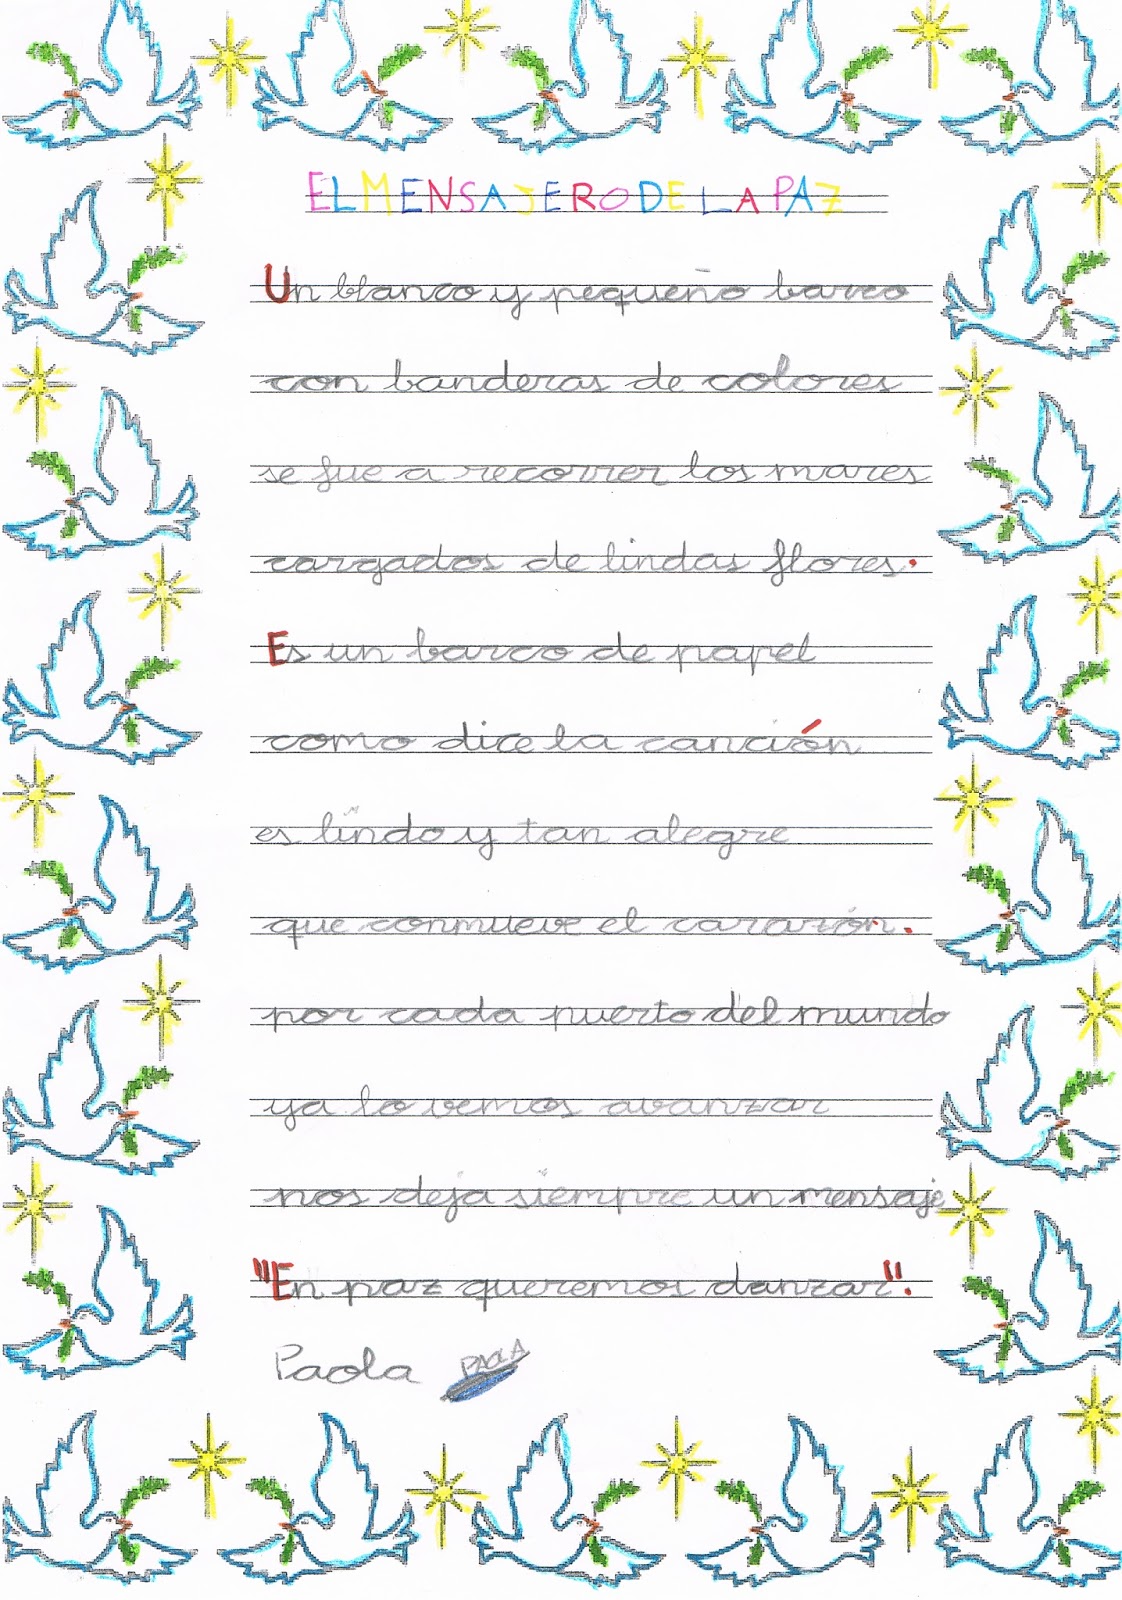 EL MENSAJERO DE LA PAZ
Un blanco y pequeño barco
con banderas de colores
se fue a recorrer los mares
cargados de lindas flores.
Es un barco de papel
como dice la canción
es lindo y tan alegre
que conmueve el corazón.
por cada puerto del mundo
ya lo vemos avanzar
nos deja siempre un mensaje
"En paz queremos danzar".
Paola PAOLA